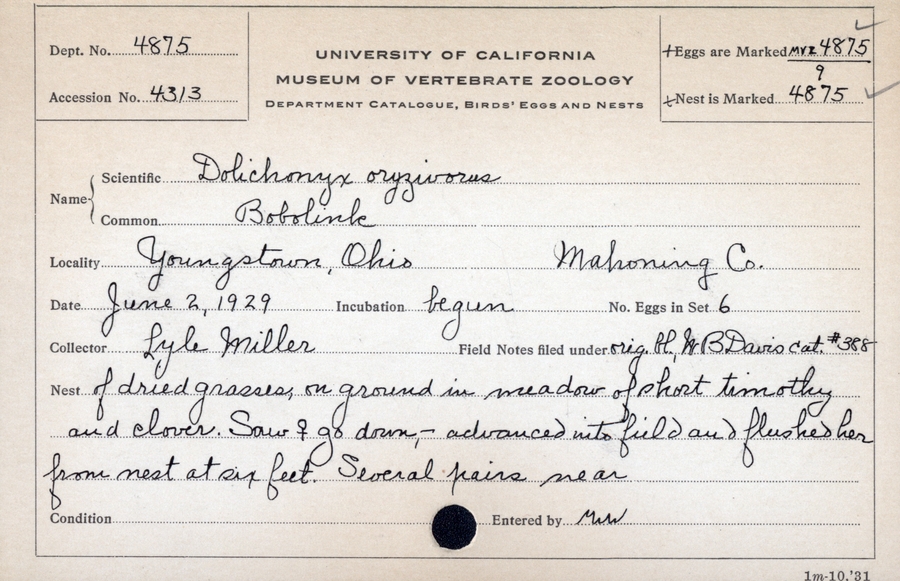 Dept. No. 4875
Accession No. 4313
UNIVERSITY OF CALIFORNIA
MUSEUM OF VERTEBRATE ZOOLOGY
DEPARTMENT CATALOGUE, BIRDS' EGGS AND NESTS
Eggs are Marked MVZ 4875
9
Nest is Marked 4875
Name
Scientific Dolichonyx oryzivorus
Common Bobolink
Locality Youngstown, Ohio Mahoning Co.
Date June 2, 1929 Incubation begun No. Eggs in Set 6
Collector Lyle Miller Field Notes filed under orig. bl, W B Davis cat. #388
Nest of dried grasses, on ground in meadow of short timothy
and clover. Saw ♀ go down, - advanced into field and flushed her
from nest at six feet. Several pairs near
Condition Entered by
1m-10,'31